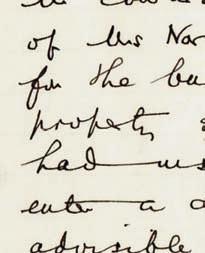 of Mrs Nor
for the bu
property
had
enter a
advisible